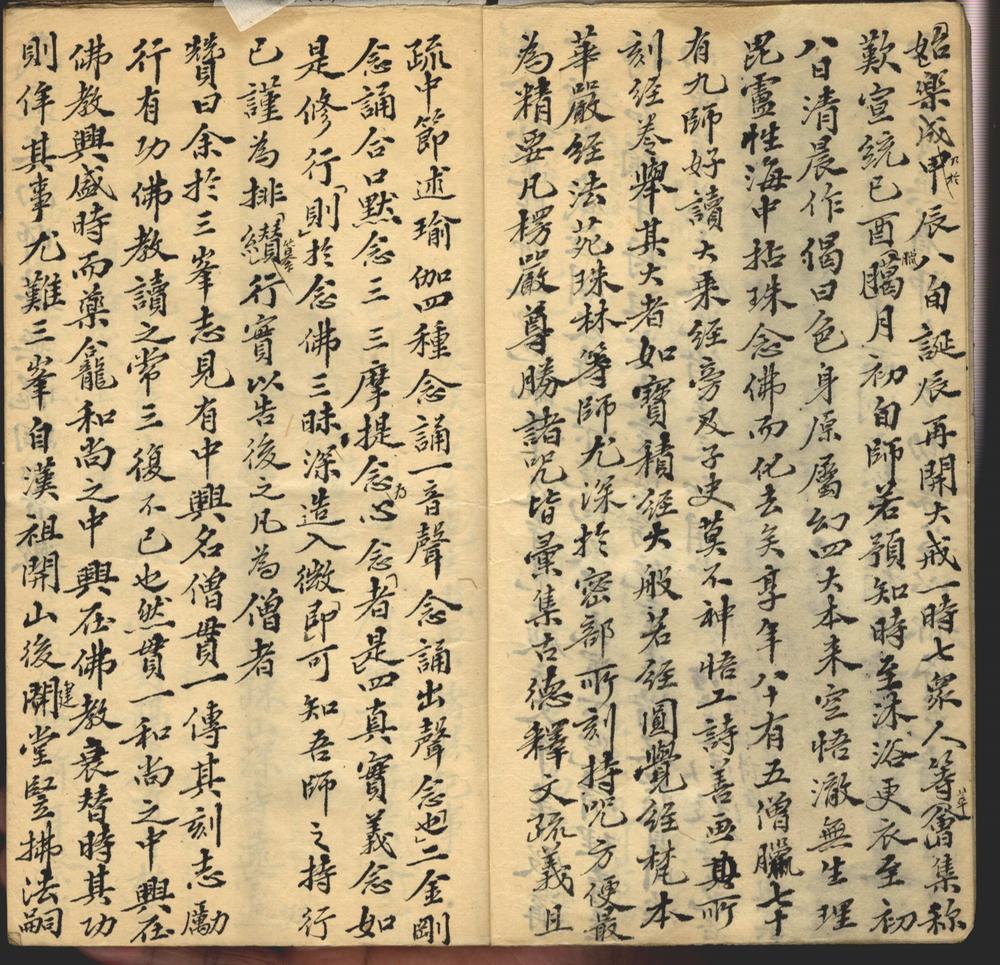 始樂成甲辰八旬誕辰再開大戒一時七眾人等會集稱
歎宣統已酉臈月初旬師若預知時至沐浴更衣至初
八日清晨作偈曰色身原屬幻四大本來空悟澈無生理
毘盧性海中拈珠念佛而化去矣享年八十有五僧臘七十
有九師好讀大乘經旁及子史莫不神悟工詩善画其所
刻經卷舉其大者如寶積經大般若經圓覺經梵本
華嚴經法苑珠林等師尤深於密部所刻持咒方便最
為精要凡楞嚴尊勝諸咒皆彙集古德釋文疏義且
疏中節述瑜伽四種念誦一音聲念誦出聲念也二金剛
念誦合口默念三三摩提念心念者是四真實義念如
是修行則於念佛三昧深造入微即可知吾師之持行
已謹為排纘行實以告後之凡為僧者
贊曰余於三峯志見有中興名僧貫一傳其刻志勵
行有功佛教讀之常三復不已也然貫一和尚之中興在
佛教興盛時而藥龕和尚之中興在佛教衰替時其功
則侔其事尤難三峯自漢祖開山後開堂竪拂法嗣